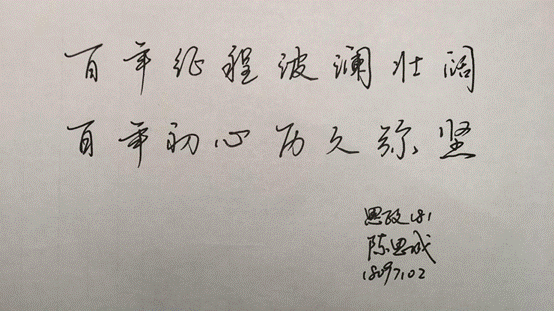 百年征程波澜壮阔
百年初心历久弥坚
思政181
陈思成
18097102